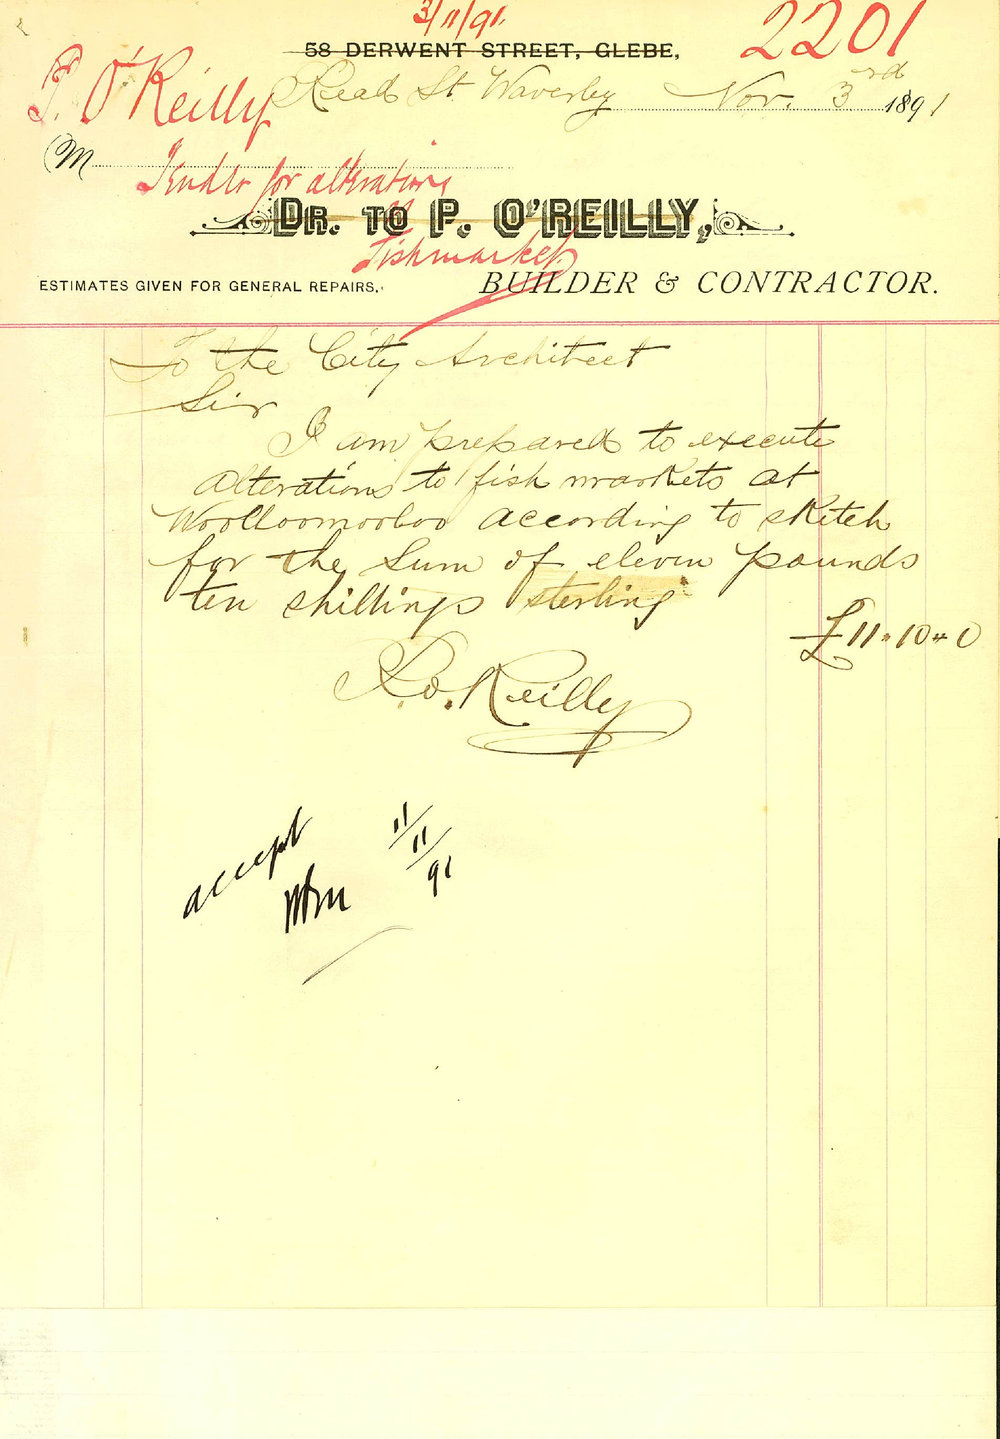 3/11/91.
2201
58 DERWENT STREET, GLEBE,
P. O'Reilly
Read St. Waverley Nov. 3rd 1891
M
Tender for alterations
DR. TO P. O'REILLY,
Fishmarket.
ESTIMATES GIVEN FOR GENERAL REPAIRS.
BUILDER & CONTRACTOR.
To the City Architect
Sir
I am prepared to execute
alterations to fish markets at
Woolloomooloo according to sketch
for the sum of eleven pounds
ten shillings sterling
£11-10-0
P. O. Reilly
accept
11/11/91